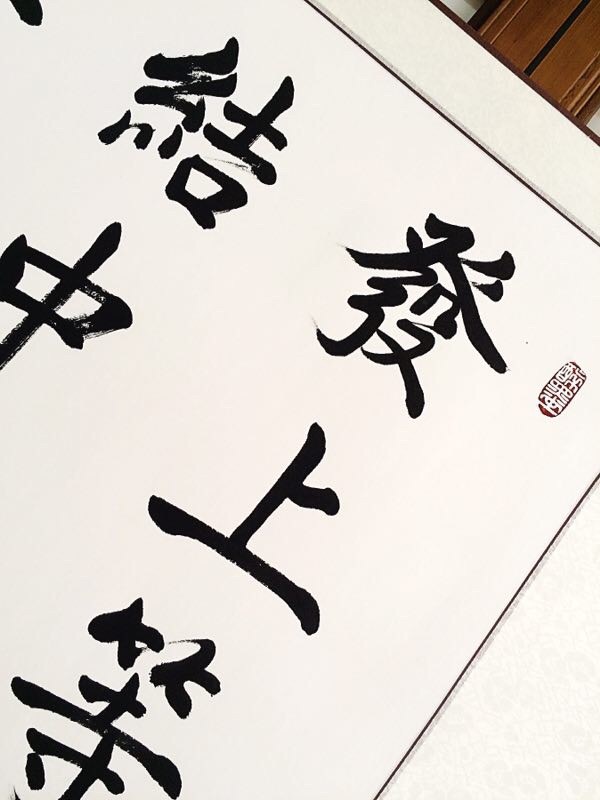 發上等
結中